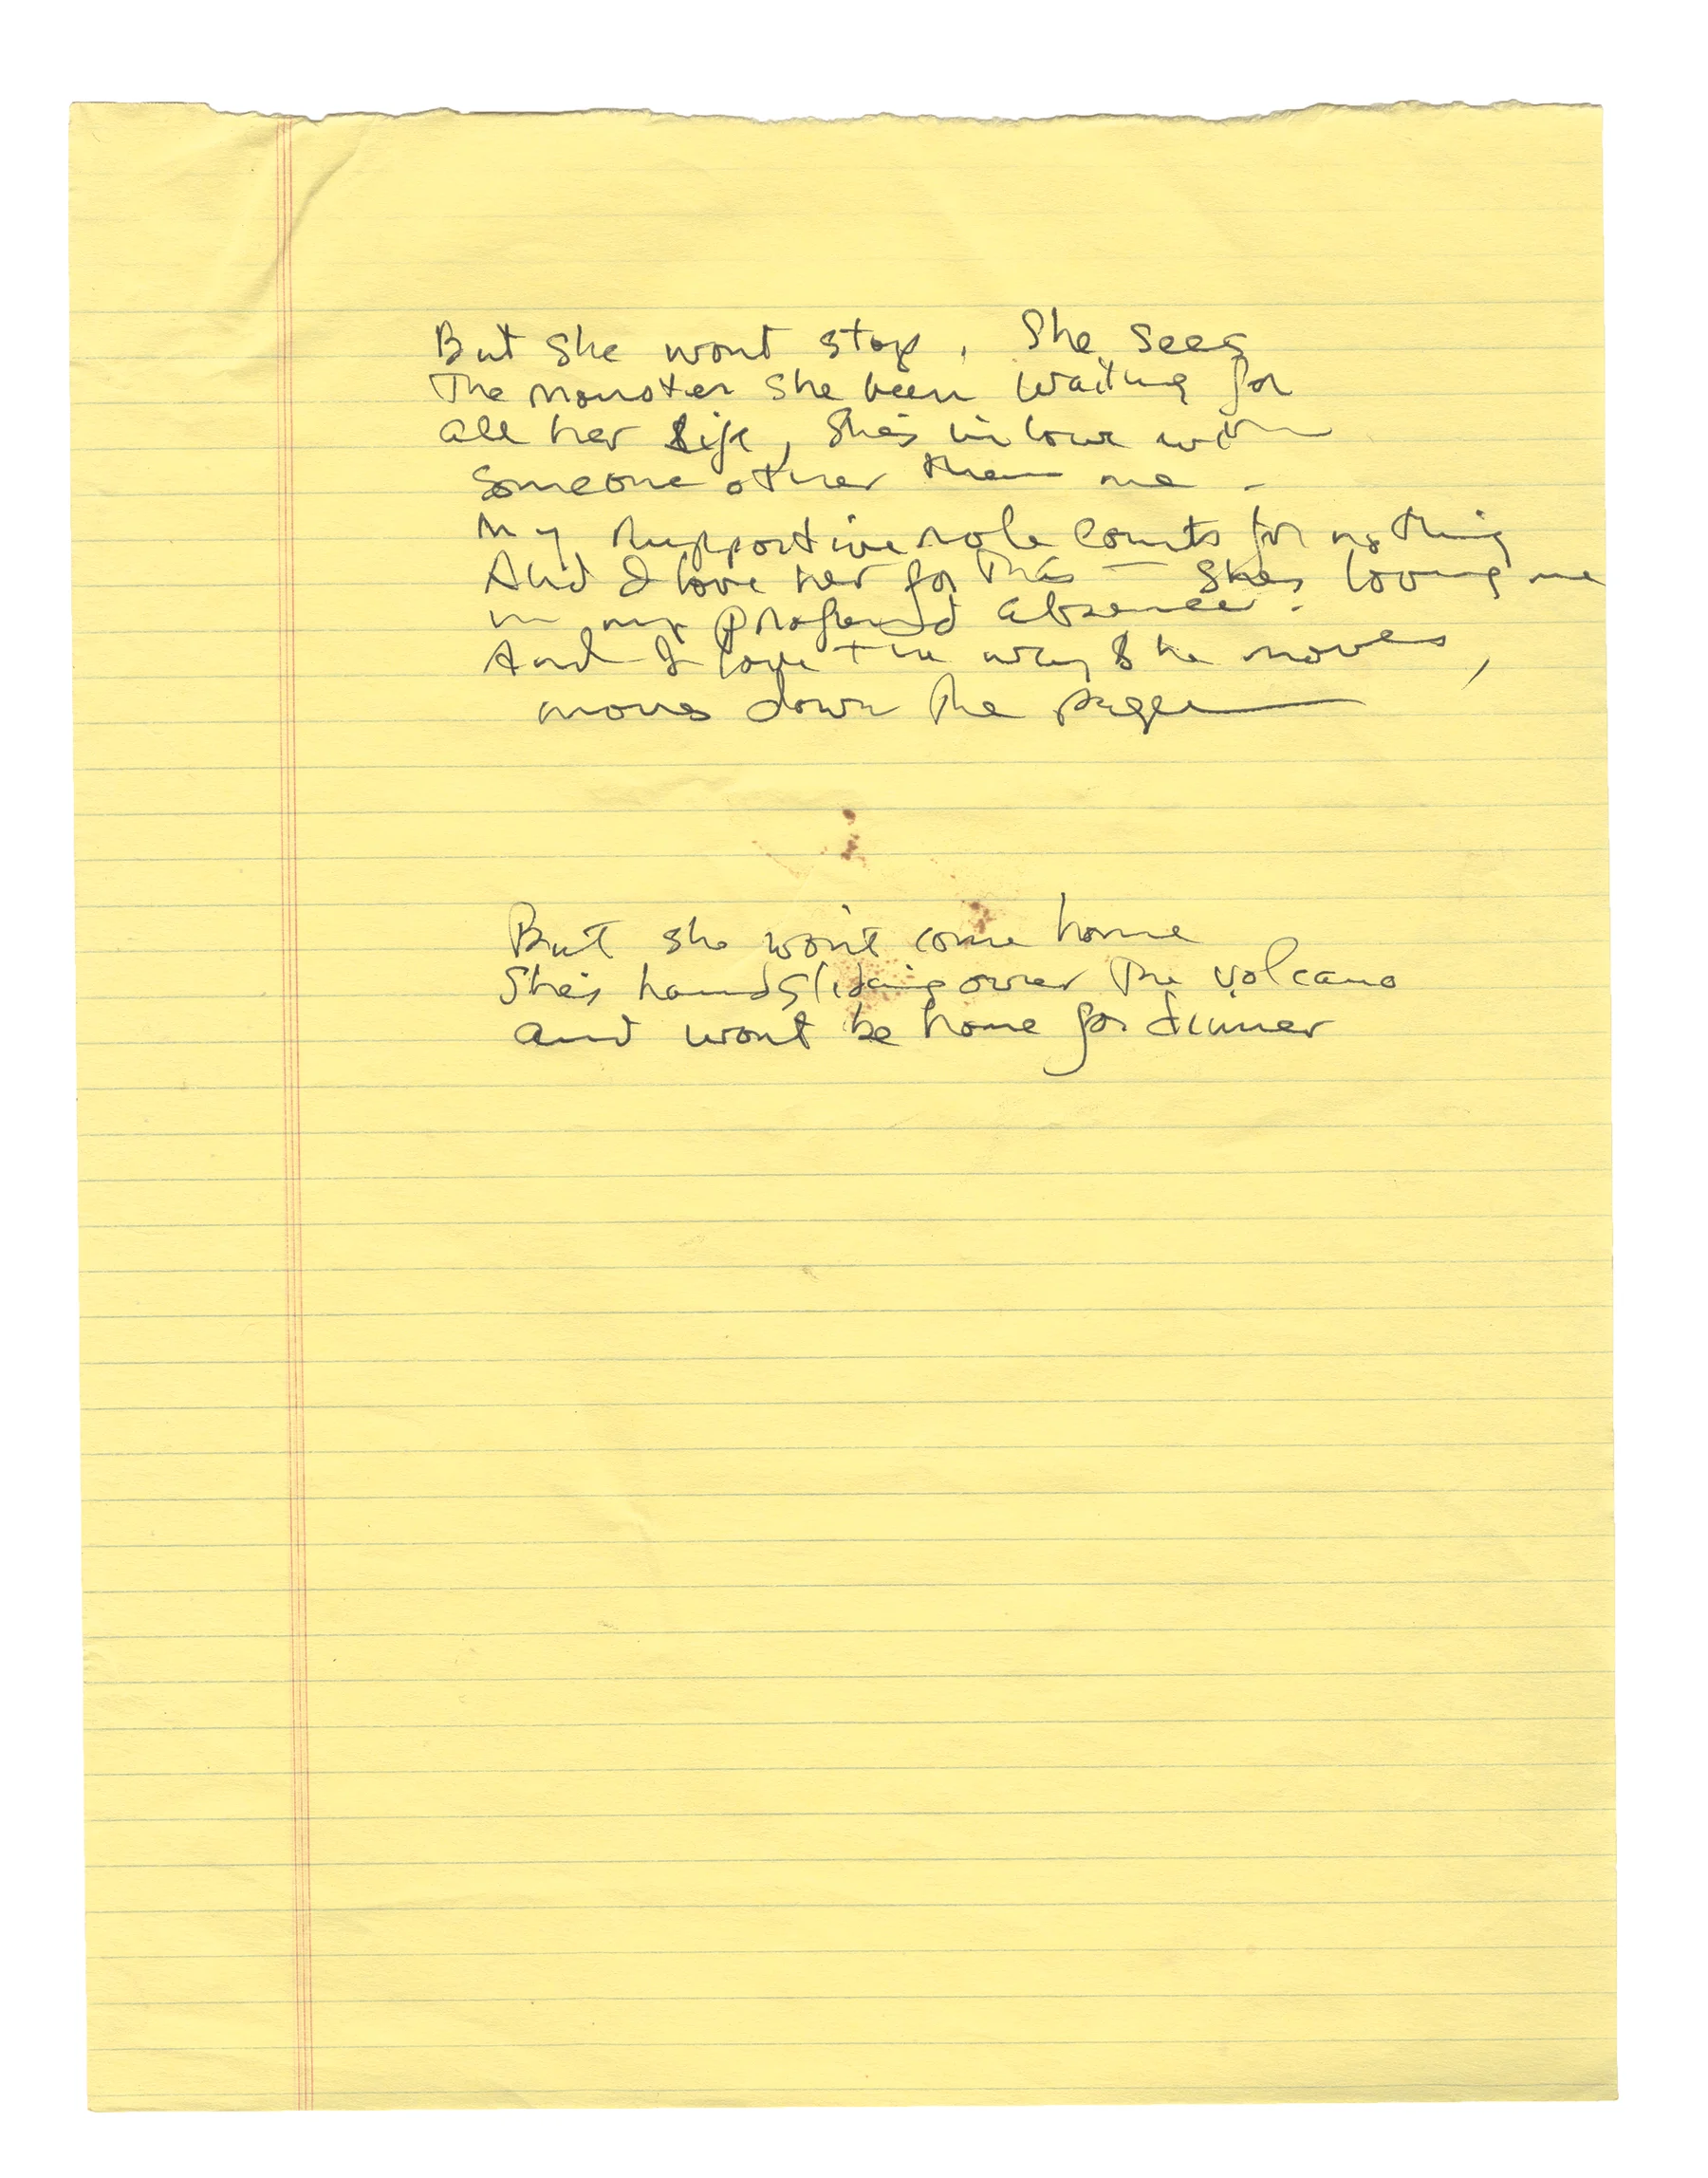 But she wont stop. She sees
The monster she been waiting for
all her life, she's in love with
someone other than me -
My supportive role counts for nothing
And I love her for this — she's loving me
in my profound absence.
And I love the way she moves,
moves down the page
But she won't come home
She's handgliding over the volcano
and wont be home for dinner